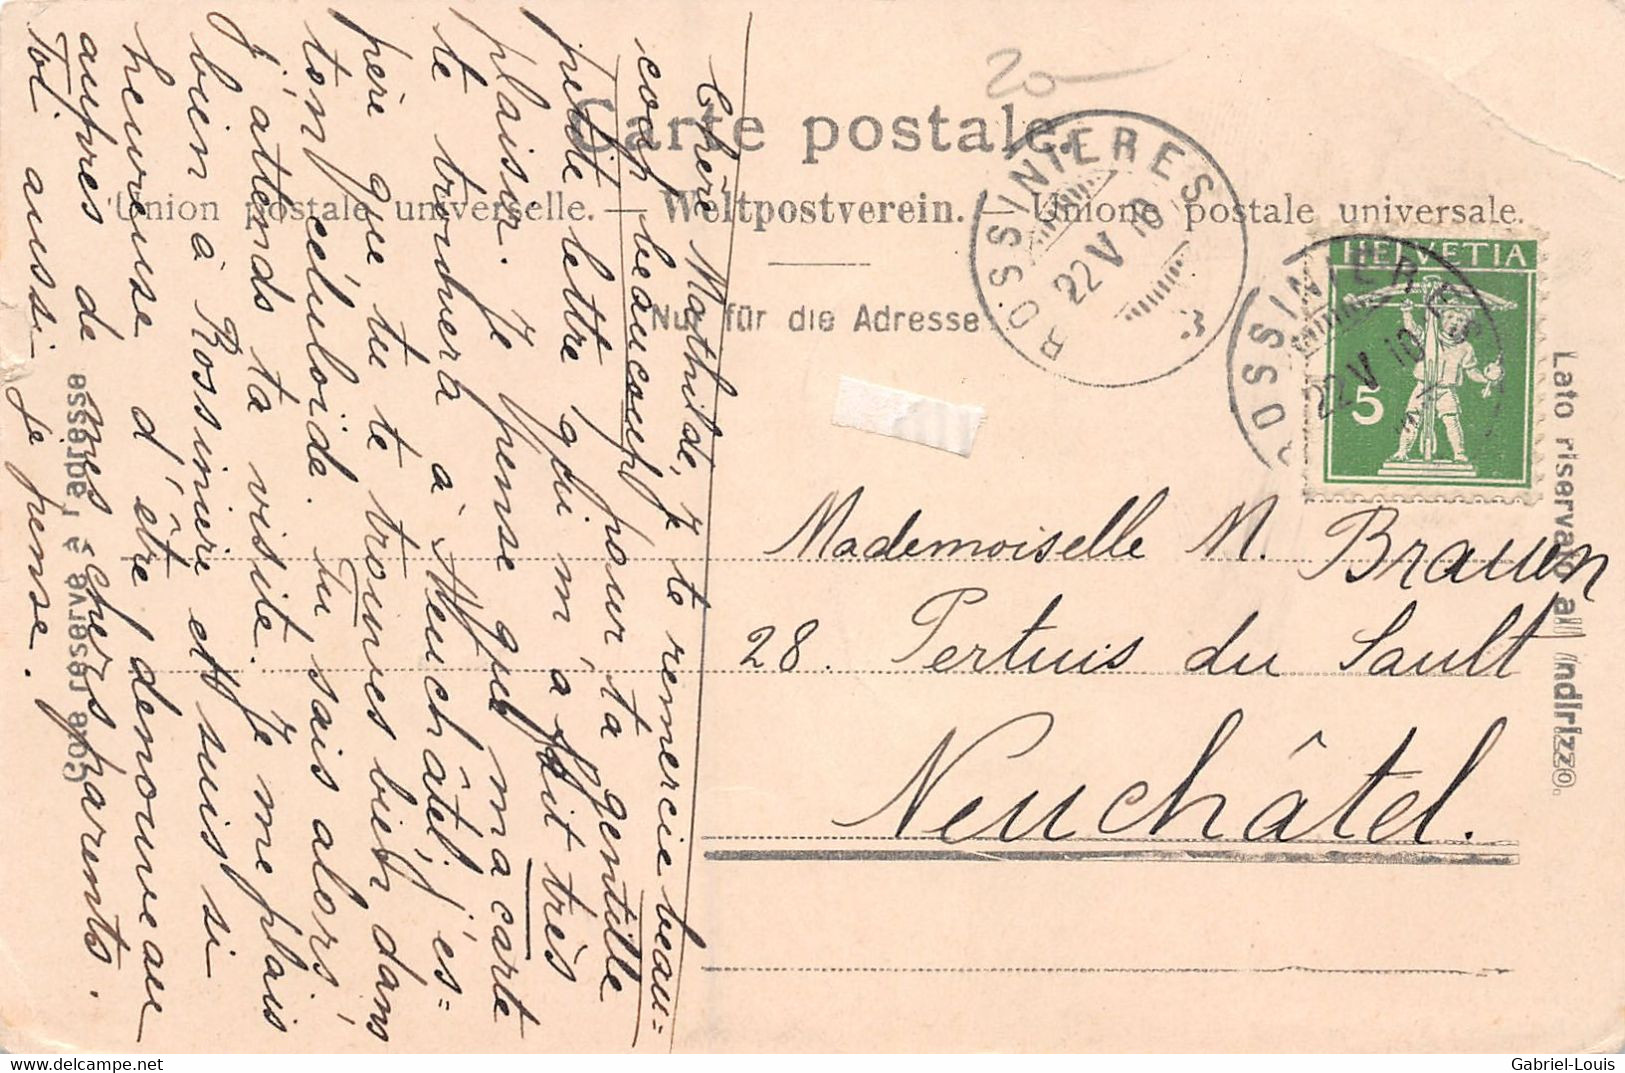 Carte postale.
Union postale universelle. — Weltpostverein. — Unione postale universale.
Nur für die Adresse.
Côté réservé à l'adresse
Lato riservato all'indirizzo.
ROSSINIERES
22 V 10
3
ROSSINIERES
22 V 10
HELVETIA
5
20
Mademoiselle M. Brauen
28. Pertuis du Sault
Neuchâtel.
Chère Mathilde, je te remercie beau=
coup beaucoup pour ta gentille
petite lettre qui m'a fait très
plaisir. Je pense que ma carte
te trouvera à Neuchâtel, j'es=
père que tu te trouves bien dans
ton céluloïde. Tu sais alors,
j'attends ta visite. Je me plais
bien à Rossinière et suis si
heureuse d'être denouveau
auprès de mes chers parents.
Toi aussi je pense.
delcampe.net
Gabriel-Louis